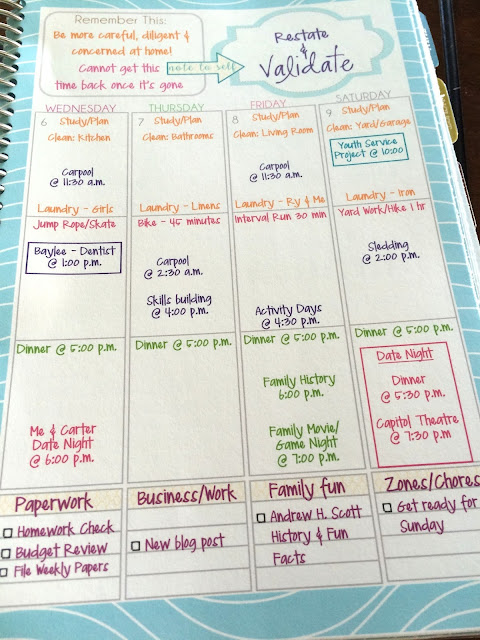 Remember This:
Be more careful, diligent &
concerned at home!
Cannot get this
time back once it's gone
note to self
Restate
&
Validate
WEDNESDAY
6 Study/Plan
Clean: Kitchen
Carpool
@ 11:30 a.m.
Laundry - Girls
Jump Rope/Skate
Baylee - Dentist
@ 1:00 p.m.
Dinner @ 5:00 p.m.
Me & Carter
Date Night
@ 6:00 p.m.
Paperwork
Homework Check
Budget Review
File Weekly Papers
THURSDAY
7 Study/Plan
Clean: Bathrooms
Laundry - Linens
Bike - 45 minutes
Carpool
@ 2:30 a.m.
Skills building
@ 4:00 p.m.
Dinner @ 5:00 p.m.
Business/Work
New blog post
FRIDAY
8 Study/Plan
Clean: Living Room
Carpool
@ 11:30 a.m.
Laundry - Ry & Me
Interval Run 30 min
Activity Days
@ 4:30 p.m.
Dinner @ 5:00 p.m.
Family History
6:00 p.m.
Family Movie/
Game Night
@ 7:00 p.m.
Family fun
Andrew H. Scott
History & Fun
Facts
SATURDAY
9 Study/Plan
Clean: Yard/Garage
Youth Service
Project @ 10:00
Laundry - Iron
Yard Work/Hike 1 hr
Sledding
@ 2:00 p.m.
Dinner @ 5:00 p.m.
Date Night
Dinner
@ 5:30 p.m.
Capitol Theatre
@ 7:30 p.m
Zones/Chores
Get ready for
Sunday